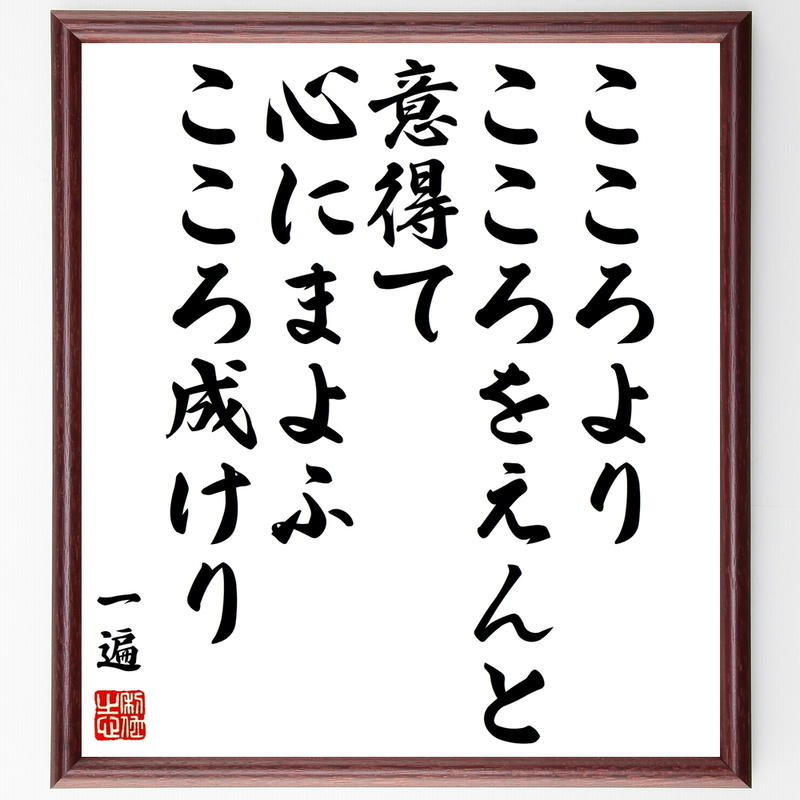 こころより
こころをえんと
意得て
心にまよふ
こころ成けり
一遍